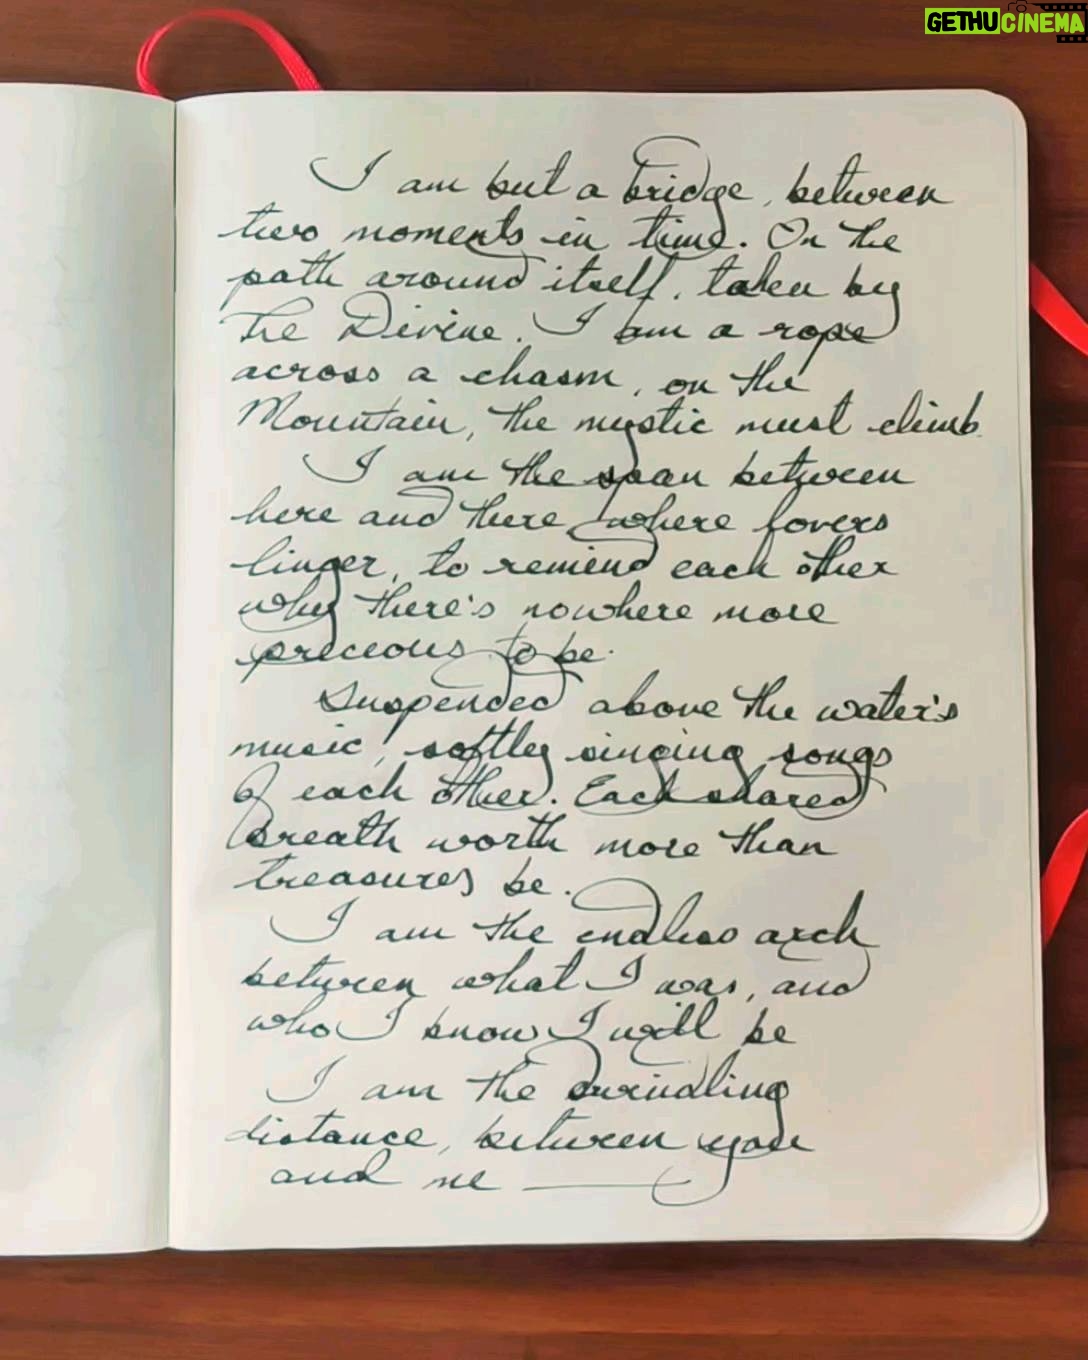 GETHUCINEMA
I am but a bridge, between
two moments in time. On the
path around itself, taken by
the Divine. I am a rope
across a chasm, on the
Mountain, the mystic must climb.
I am the span between
here and there where lovers
linger, to remind each other
why there's nowhere more
precious to be.
Suspended above the water's
music, softly singing songs
of each other. Each shared
breath worth more than
treasures be.
I am the endless arch
between what I was, and
who I know I will be
I am the dwindling
distance, between you
and me